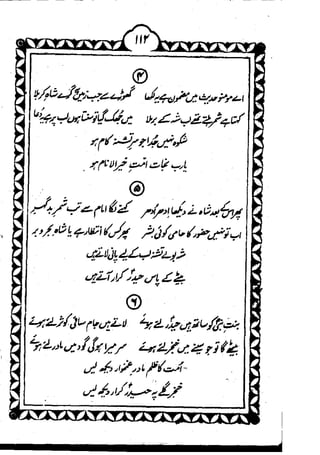 ۱۱۲
۴
اے مومنو حدیث میں مضمون ہے یہ لکھا گھوڑے سے جب زمیں پہ گرے شاہ کربلا
کہتا ہے شمر لے تشنہ کے برملا میں جھک گیا تو سنتا ہوں لب پہ ہے دعا
شکوہ نہیں جدا جو سر تشنہ کام ہو
یارب نجات امت خیر الانام ہو
۵
پھر اس کے بعد شاہ نے دیکھا ادھر ادھر کہنے لگا امام سے تب شمر بد گہر
اب تو نہیں حضور کا حامی کوئی بشر پھر کس کا انتظار ہے یا شاہ بحر و بر
شہ بولے تشنہ لب کے لیے پانی لاتے ہیں
بیٹے کے پاس حیدر کرار آتے ہیں
۶
بنت نبی کو ساتھ ہیں حیدر لئے ہوئے لاتے ہیں جام ساقی کوثر لئے ہوئے
بیٹھے گا تو جو سینے میں خنجر لئے ہوئے سر میرا ہوگی گود میں مادر لئے ہوئے
امت کا ظلم مادر غمخوار دیکھ لیں
خنجر گلے پہ حیدر کرار دیکھ لیں